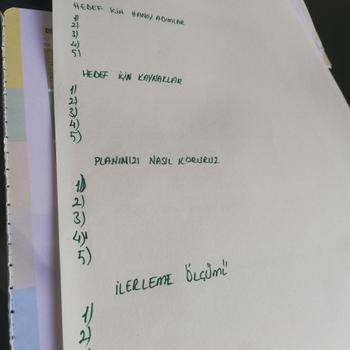 HEDEF İÇİN HANGİ ADIMLAR
1)
2)
3)
4)
5)
HEDEF İÇİN KAYNAKLAR
1)
2)
3)
4)
5)
PLANIMIZI NASIL KORURUZ
1)
2)
3)
4)
5)
İLERLEME ÖLÇÜMÜ
1)
2)